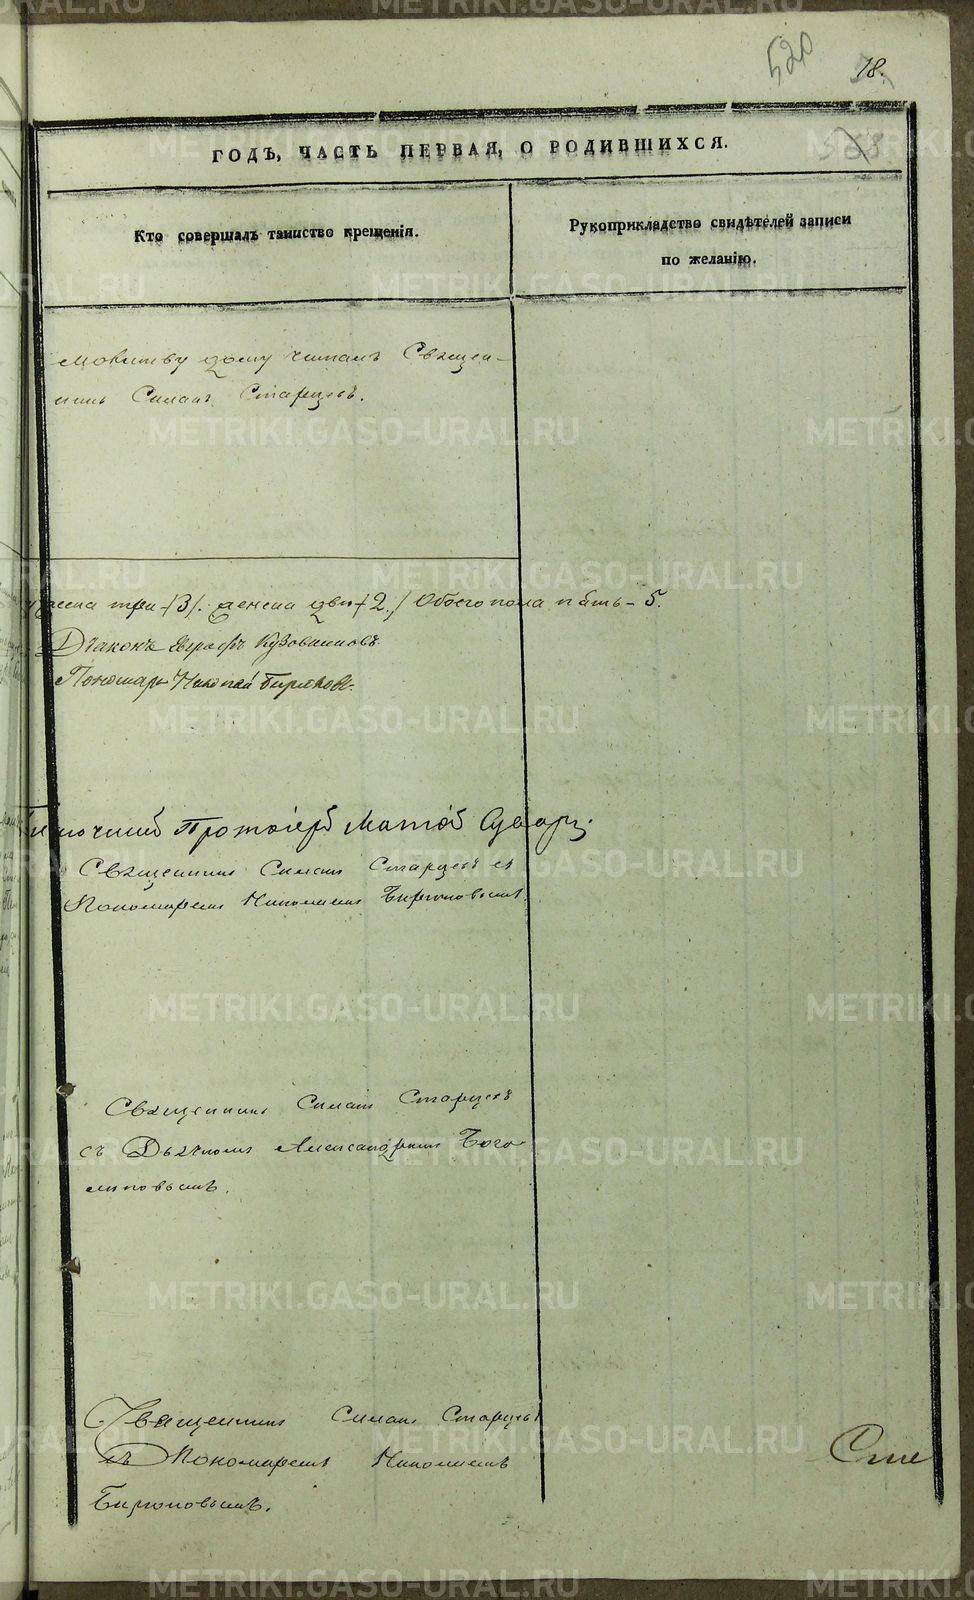 520
18.
568
ГОДЪ, ЧАСТЬ ПЕРВАЯ, О РОДИВШИХСЯ.
Кто совершалъ таинство крещенія.
Рукоприкладство свидѣтелей записи
по желанію.
Молитву дому читалъ Священ-
никъ Силанъ Старцевъ.
три (3). женска двѣ (2.) Обоего пола пять – 5.
Діаконъ Кузовниковъ
Пономарь Николай Бирюковъ.
Протоіерей
Священникъ Силанъ Старцевъ съ
Пономаремъ Николаемъ Бирюковымъ.
Священникъ Силанъ Старцевъ
съ Дьячкомъ Александромъ Бого
Священникъ Силанъ Старцевъ
съ Пономаремъ Николаемъ
Бирюковымъ.
METRIKI.GASO-URAL.RU